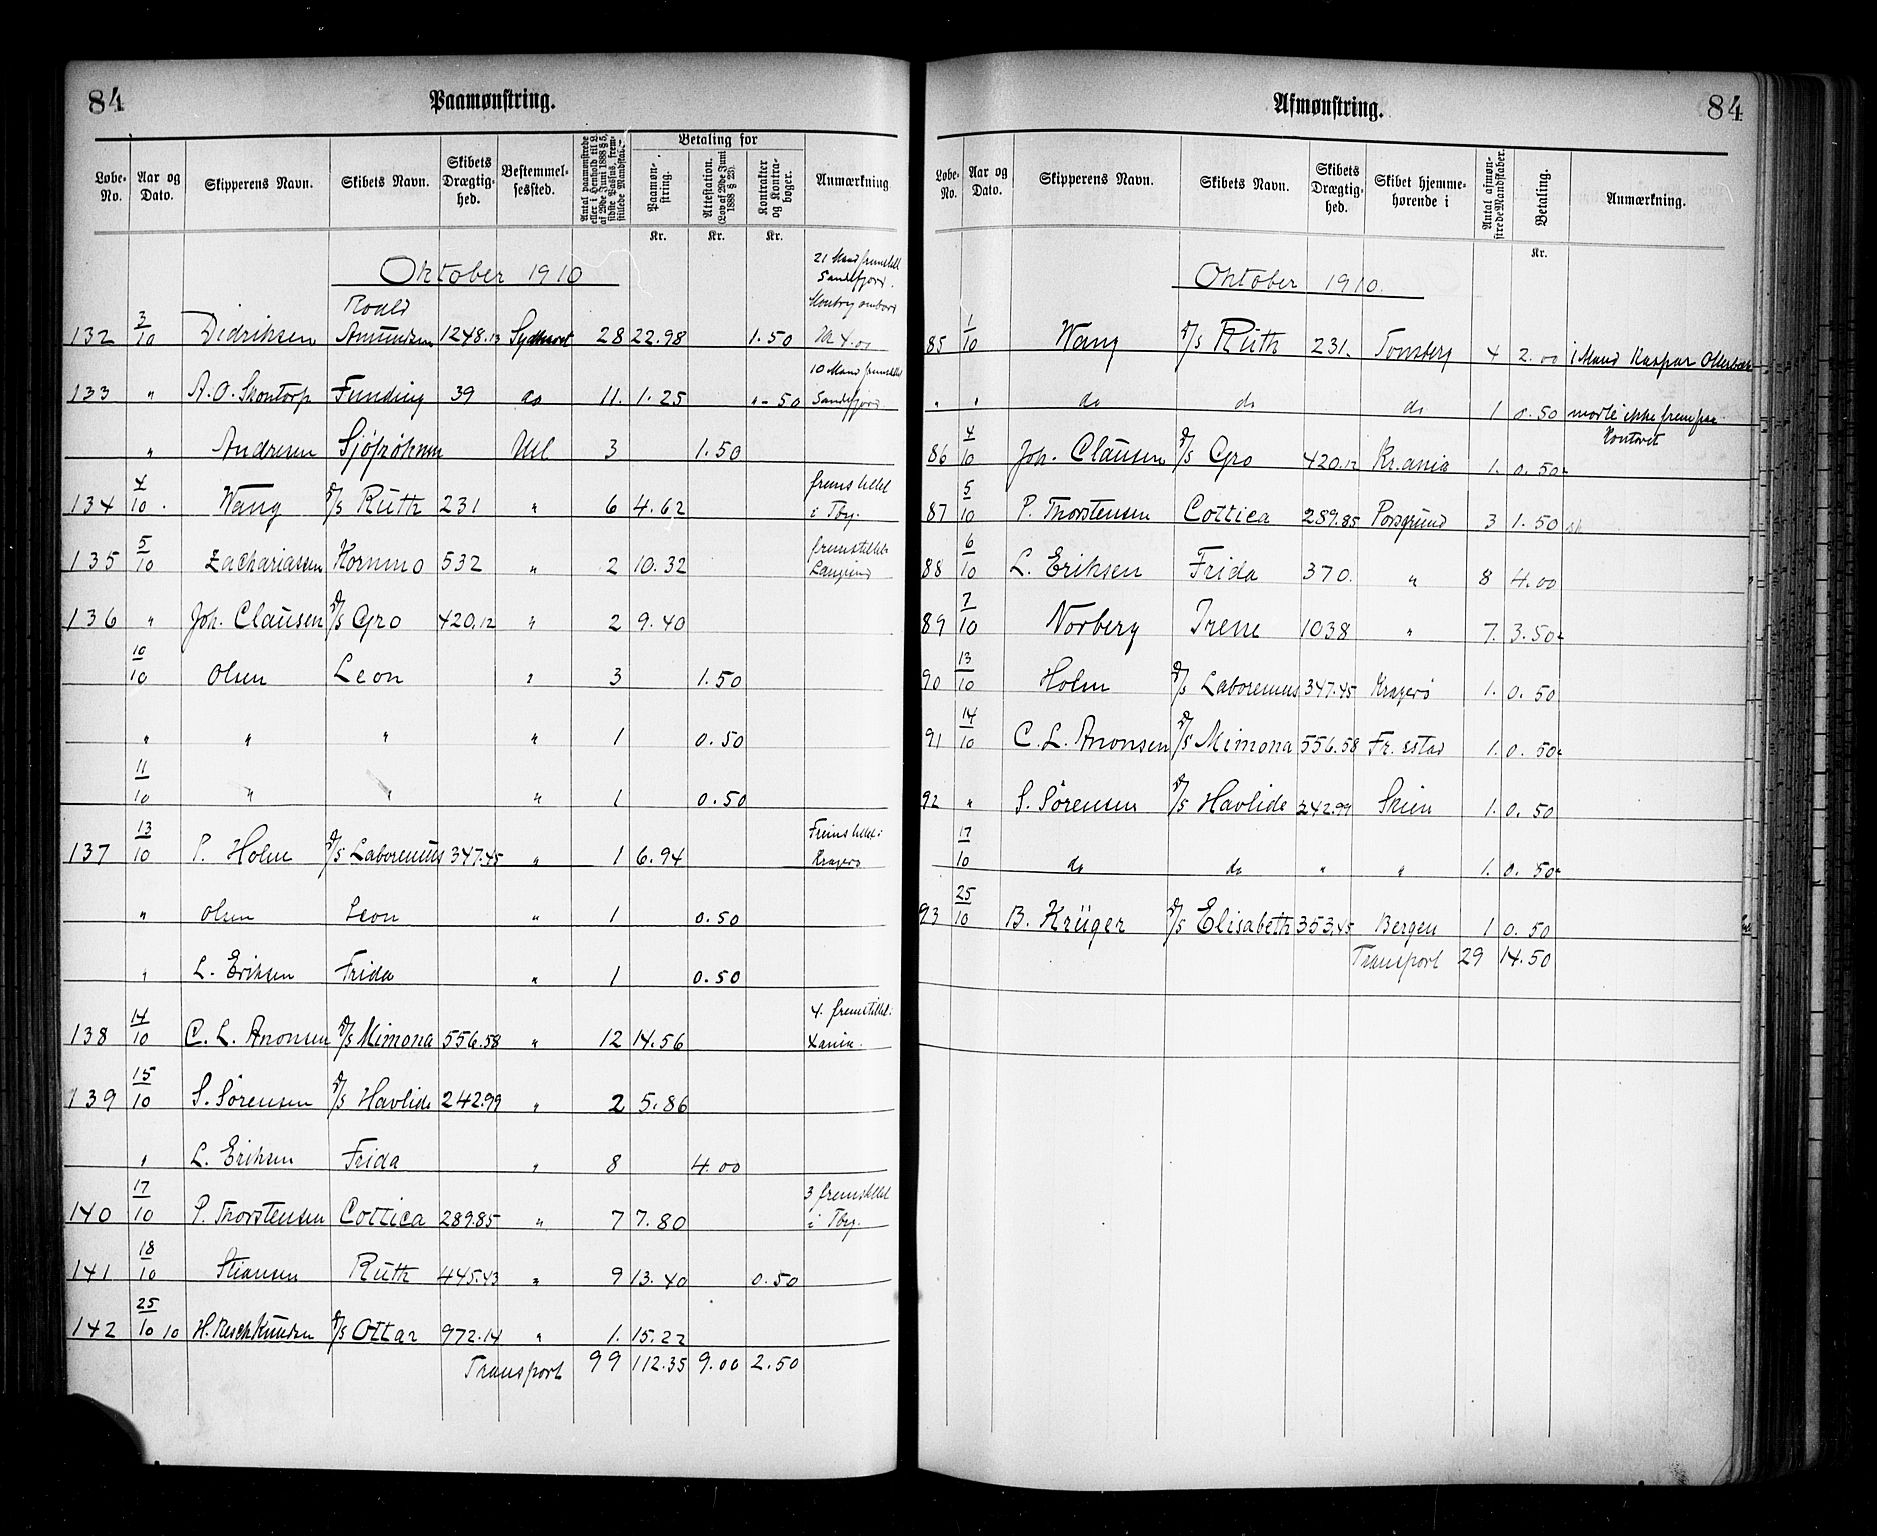 84
Paamønstring.
Løbe-No. | Aar og Dato. | Skipperens Navn. | Skibets Navn. | Skibets Drægtighed. | Bestemmelsessted. | Antal paamønstrede eller i Henhold til L. af 29de Juni 1888 § 5, sidste Passus, fremstillede Mandskaber. | Betaling for | Paamønstring. | Attestation. (Lov af 29de Juni 1888 § 23). | Kontrakter og Kontrabøger. | Anmærkning
Kr. | Kr. | Kr.
Oktober 1910 | 21 Mand fremstillet Sandefjord. Montrg ombord
132 | 3/10 | Didriksen | Roald Amundsen | 1248.13 | Sydhavet | 28 | 22.98 | 1.50 | Kr 4.00
133 | " | A. O. Skontorp | Funding | 39 | do | 11. | 1.25 | "-50 | 10 Mand fremstillet Sandefjord.
" | Andresen | | Utl | 3 | 1.50
134 | 4/10 . | Wang | D/S Ruth | 231 | " | 6 | 4.62 | fremstillet i Tbg.
135 | 5/10 | Zachariassen | Hornmo | 532 | " | 2 | 10.32 | fremstillet Langesund
136 | " | Joh. Clausen | D/S Gro | 420,12 | " | 2 | 9.40
10/10 | Olsen | Leon | " | 3 | 1.50
" | " | " | " | 1 | 0.50
11/10 | " | " | " | 1 | 0.50
137 | 13/10 | P. Holm | D/S Laboremus | 347.45 | " | 1 | 6.94 | Fremstillet i Kragerø
" | Olsen | Leon | " | 1 | 0.50
" | L. Eriksen | Frida | " | 1 | 0.50
138 | 14/10 | C. L. Aronsen | D/S Mimona | 556.58 | " | 12 | 14.56 | 4. fremstillet. Xania.
139 | 15/10 | S. Sørensen | D/S Havlide | 242.99 | " | 2 | 5.86
" | L. Eriksen | Frida | " | 8 | 4.00
140 | 17/10 | P. Thorstensen | Cottica | 289.85 | " | 7 | 7.80 | 3 fremstillet i Tbg.
141 | 18/10 | Stiansen | Ruth | 445.43 | " | 9 | 13.40 | 0.50
142 | 25/10 10 | H. Resch Knudsen | D/S Ottar | 972.14 | " | 1. | 15.22
Transport | 99 | 112.35 | 9.00 | 2.50
Afmønstring.
84
Løbe-No. | Aar og Dato. | Skipperens Navn. | Skibets Navn. | Skibets Drægtighed. | Skibet hjemmehørende i | Antal afmønstrede Mandskaber. | Betaling. | Anmærkning.
Kr.
Oktober 1910.
85 | 1/10 | Wang | D/S Ruth | 231. | Tønsberg | 4 | 2.00 | 1 Mand Kaspar Ollerbæk
" | " | do | do | do | 1. | 0.50 | mødte ikke frem paa Kontoret
86 | 4/10 | Joh. Clausen | D/S Gro | 420.12 | Kr.ania | 1. | 0.50
87 | 5/10 | P. Thorstensen | Cottica | 289.85 | Porsgrund | 3 | 1.50
88 | 6/10 | L. Eriksen | Frida | 370. | " | 8 | 4.00
89 | 7/10 | Norberg | Irene | 1038 | " | 7. | 3.50
90 | 13/10 | Holm | D/S Laboremus | 347.45 | Kragerø | 1. | 0.50
91 | 14/10 | C. L. Aronsen | D/S Mimona | 556.58 | Fr.stad | 1. | 0.50
92 | " | S. Sørensen | D/S Havlide | 242.99 | Skien | 1. | 0.50
17/10 | do | do | " | " | 1. | 0.50
93 | 25/10 | B. Krüger | D/S Elisabeth | 353.45 | Bergen | 1 | 0.50
Transport | 29 | 14.50